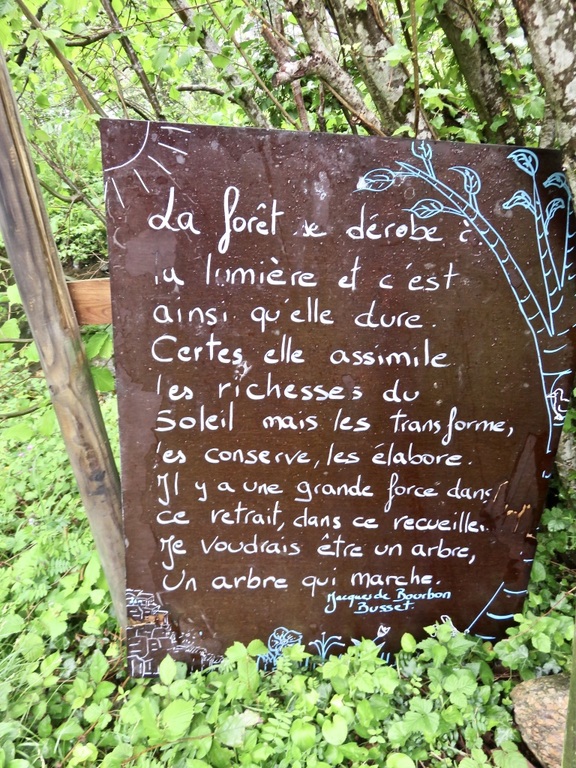 La forêt se dérobe à
la lumière et c'est
ainsi qu'elle dure.
Certes, elle assimile
les richesses du
Soleil mais les transforme,
les conserve, les élabore.
Il y a une grande force dans
ce retrait, dans ce
Je voudrais être un arbre,
Un arbre qui marche.
Jacques de Bourbon
Busset